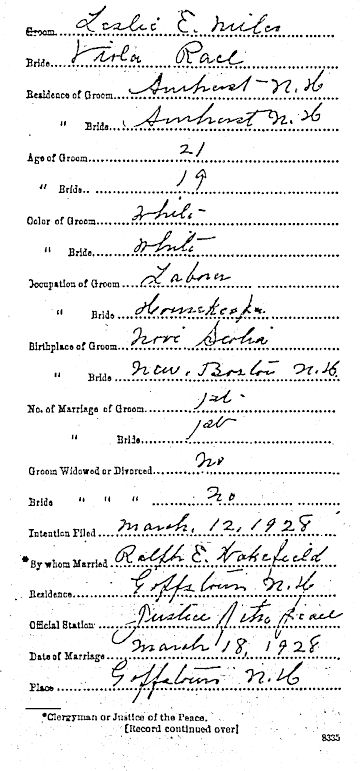 Groom Leslie E. Miles
Bride Viola Rael
Residence of Groom Amherst N.H
" Bride Amherst N.H
Age of Groom 21
" Bride 19
Color of Groom White
" Bride White
Occupation of Groom Laborer
" Bride Housekeeper
Birthplace of Groom Nova Scotia
" Bride New. Boston N.H.
No. of Marriage of Groom 1st.
" Bride 1st
Groom Widowed or Divorced No
Bride " " " No
Intention Filed March, 12, 1928
*By whom Married Ralph E. Wakefield
Residence Goffstown N.H
Official Station Justice of the Peace
Date of Marriage March 18, 1928
Place Goffstown N.H
*Clergyman or Justice of the Peace.
[Record continued over]
8335